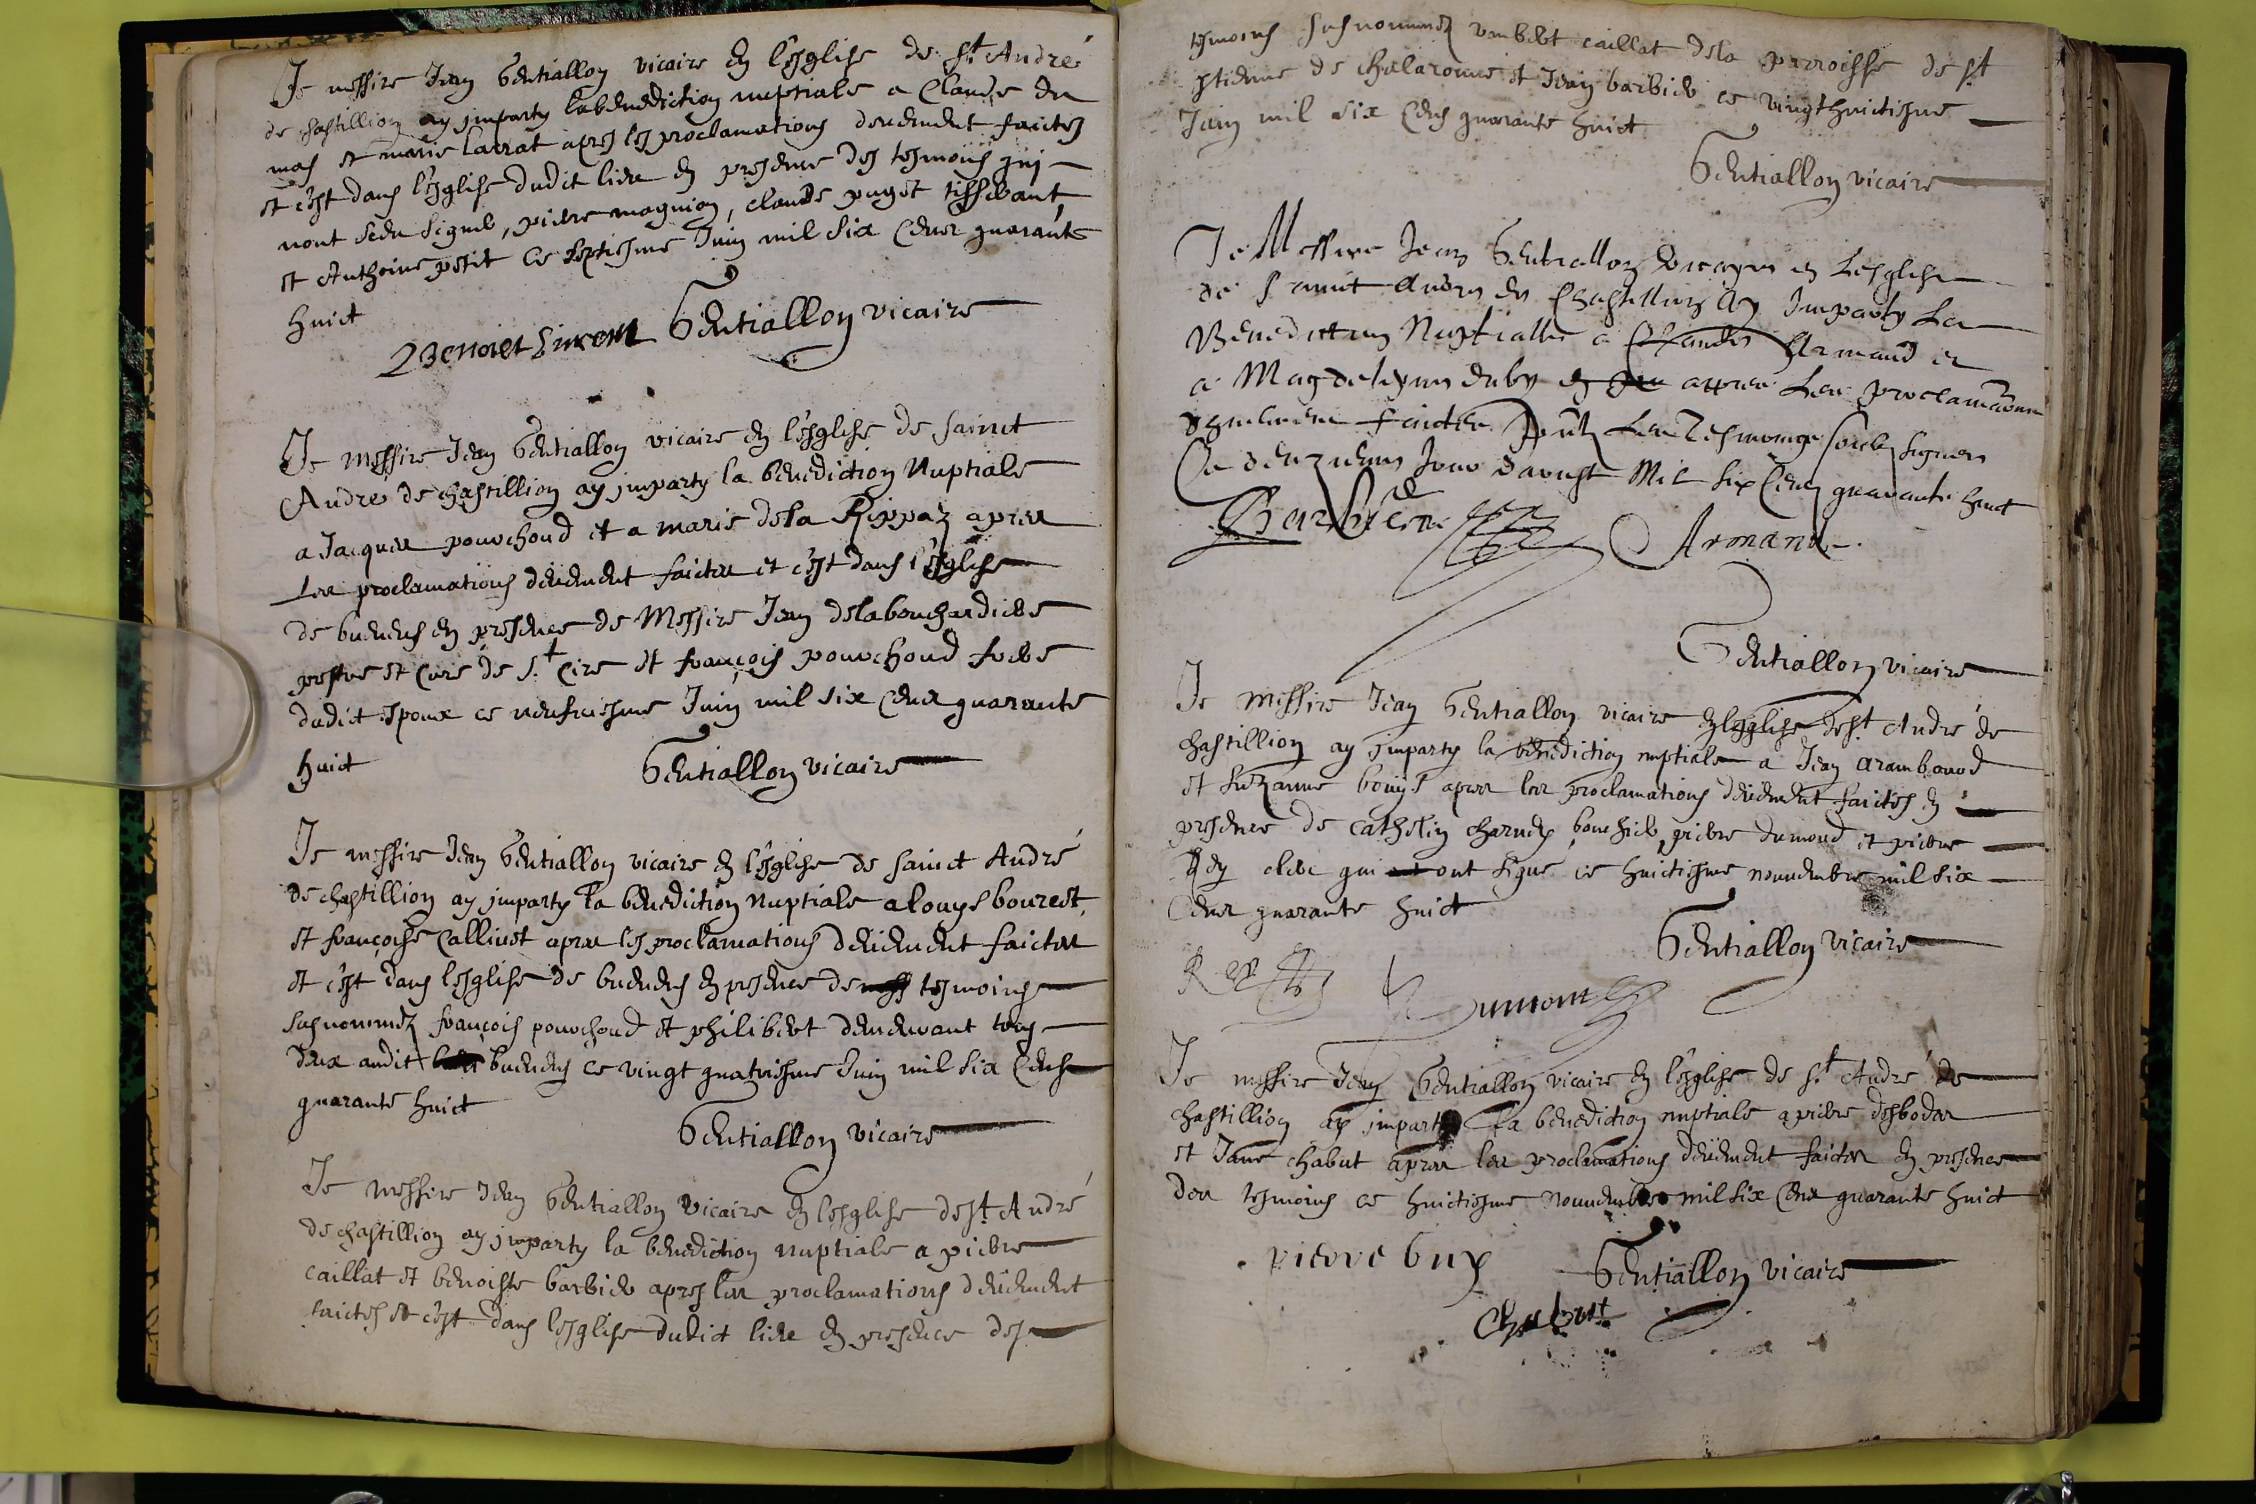 Je messire Jean Gentiallon vicaire en l'esglise de st André
de chastillion ay imparty la benediction nuptiale a Claude du
mas et marie larrat apres les proclamations deuement faictes
et c'est dans l'esglise dudit lieu en presence des tesmoins qui
nont sceu signer, pierre magnion, claude puget tisserant,
et Anthoine petit ce septiesme Juin mil six cens quarante
huict
Benoiet Gentiallon vicaire
Je messire Jean Gentiallon vicaire en l'esglise de sainct
André de chastillion ay imparty la benediction Nuptiale
a Jacques pourchoud et a marie dela Rippaz apres
les proclamations deuement faictes et c'est dans l'esglise
de buenens en presence de Messire Jean delabouchardiere
prestre et curé de st Cire et françois pourchoud frere
dudict espoux ce neufviesme Juin mil six cens quarante
huict Gentiallon vicaire
Je messire Jean Gentiallon vicaire en l'esglise de sainct André
de chastillion ay imparty la benediction Nuptiale a louys bourest
et françoise Callinet apres les proclamations deuement faictes
et c'est dans l'esglise de buenens en presence de tesmoins
susnommez françois pourchoud et philibert demeurant tous
deux audit buenens ce vingt quatriesme Juin mil six cens
quarante huict
Gentiallon vicaire
Je messire Jean Gentiallon vicaire en l'esglise de st André
de chastillion ay imparty la benediction nuptiale a pierre
caillat et benoiste barbier apres les proclamations deuement
faictes et c'est dans l'esglise dudict lieu en presence des
tesmoins susnommez umbert caillat dela parroisse de st
stienne de chalaronne et Jean barbier ce vingthuictiesme
Juin mil six cens quarante huict
Gentiallon vicaire
Je Messire Jean Gentiallon vicayre en Lesglise
de Sainct Andre de Chastillion ay Imparty La
Benediction Nuptialle a Claude Armand et
a Magdeleyne duby en appres Les proclamaõns
faictes Les Tesmoings soubz signes
Ce deuzieme Jour daoust Mil six Cens quarante huict
Barbier Armand
Gentiallon vicaire
Je messire Jean Gentiallon vicaire en l'esglise de st André de
chastillion ay imparty la benediction nuptiale a Jean arambourd
et suzanne bouys apres les proclamations deuement faictes en
presence de cathelin charvey, bouchier, pierre dumond et pierre
Rey clerc qui ont signé ce huictiesme novembre mil six
cens quarante huict
Gentiallon vicaire
Rey Dumont
Je messire Jean Gentiallon vicaire en l'esglise de st André de
chastillion ay imparty la benediction nuptiale a pierre desbodes
et Jane chabut apres les proclamations deuement faictes en presence
des tesmoins ce huictiesme novembre mil six cens quarante huict
pierre buy Gentiallon vicaire
Chabut